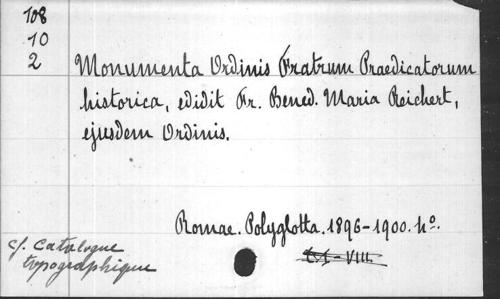 108
10
2
Monumenta Ordinis Fratrum Praedicatorum
historica, edidit Fr. Bened. Maria Reichert,
ejusdem Ordinis.
Romae. Polyglotta. 1896-1900. 4o.
t. I - VIII.
cf. Catalogue
typographique